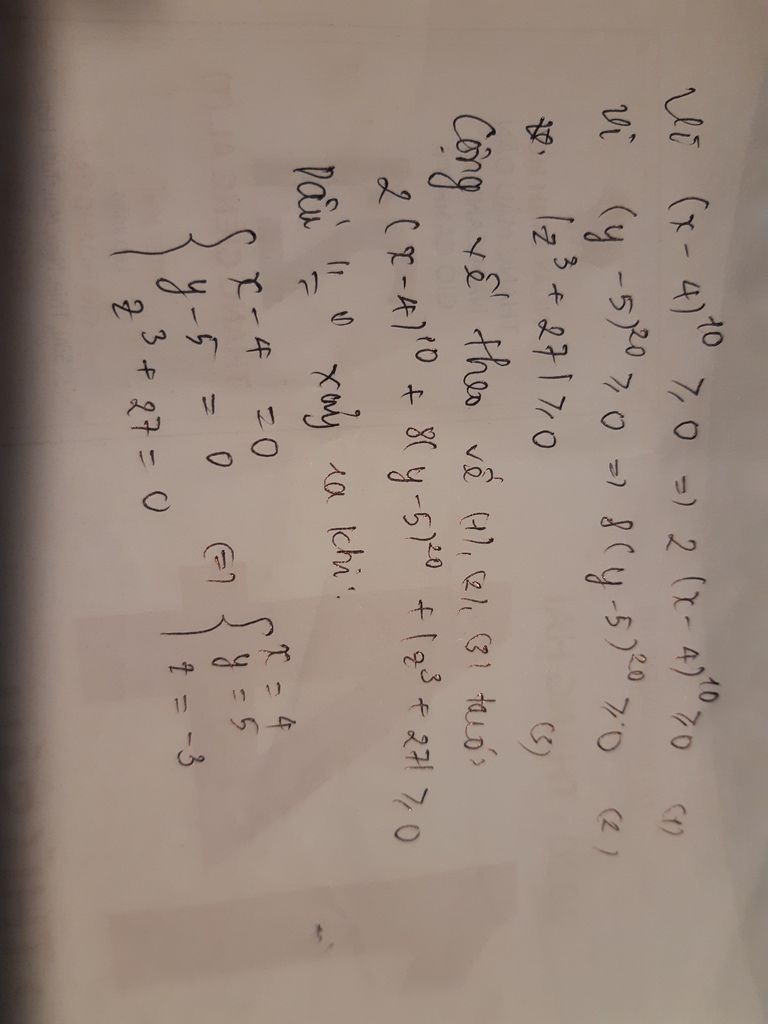 Vì (x - 4)^10 ≥ 0 => 2 (x - 4)^10 ≥ 0 (1)
Vì (y - 5)^20 ≥ 0 => 8(y - 5)^20 ≥ 0 (2)
|z^3 + 27| ≥ 0 (3)
Cộng vế theo vế (1), (2), (3) ta có:
2 (x - 4)^10 + 8(y - 5)^20 + |z^3 + 27| ≥ 0
Dấu "=" xảy ra khi:
{ x - 4 = 0
y - 5 = 0 (=) { x = 4
z^3 + 27 = 0 y = 5
z = -3